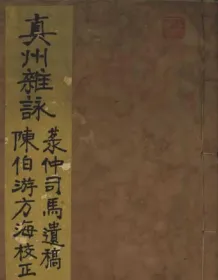 真州雜詠
菉仲司馬遺稿
陳伯游方海校正